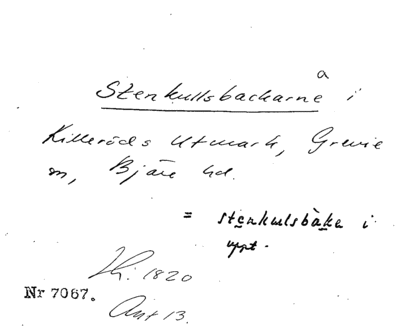 a
Stenkullsbackarne i
Killeröds Utmark, Grevie
sn, Bjäre hd.
= stenkulsbàke i
uppt.
Lh: 1820
Nr 7067.
Ant 13.